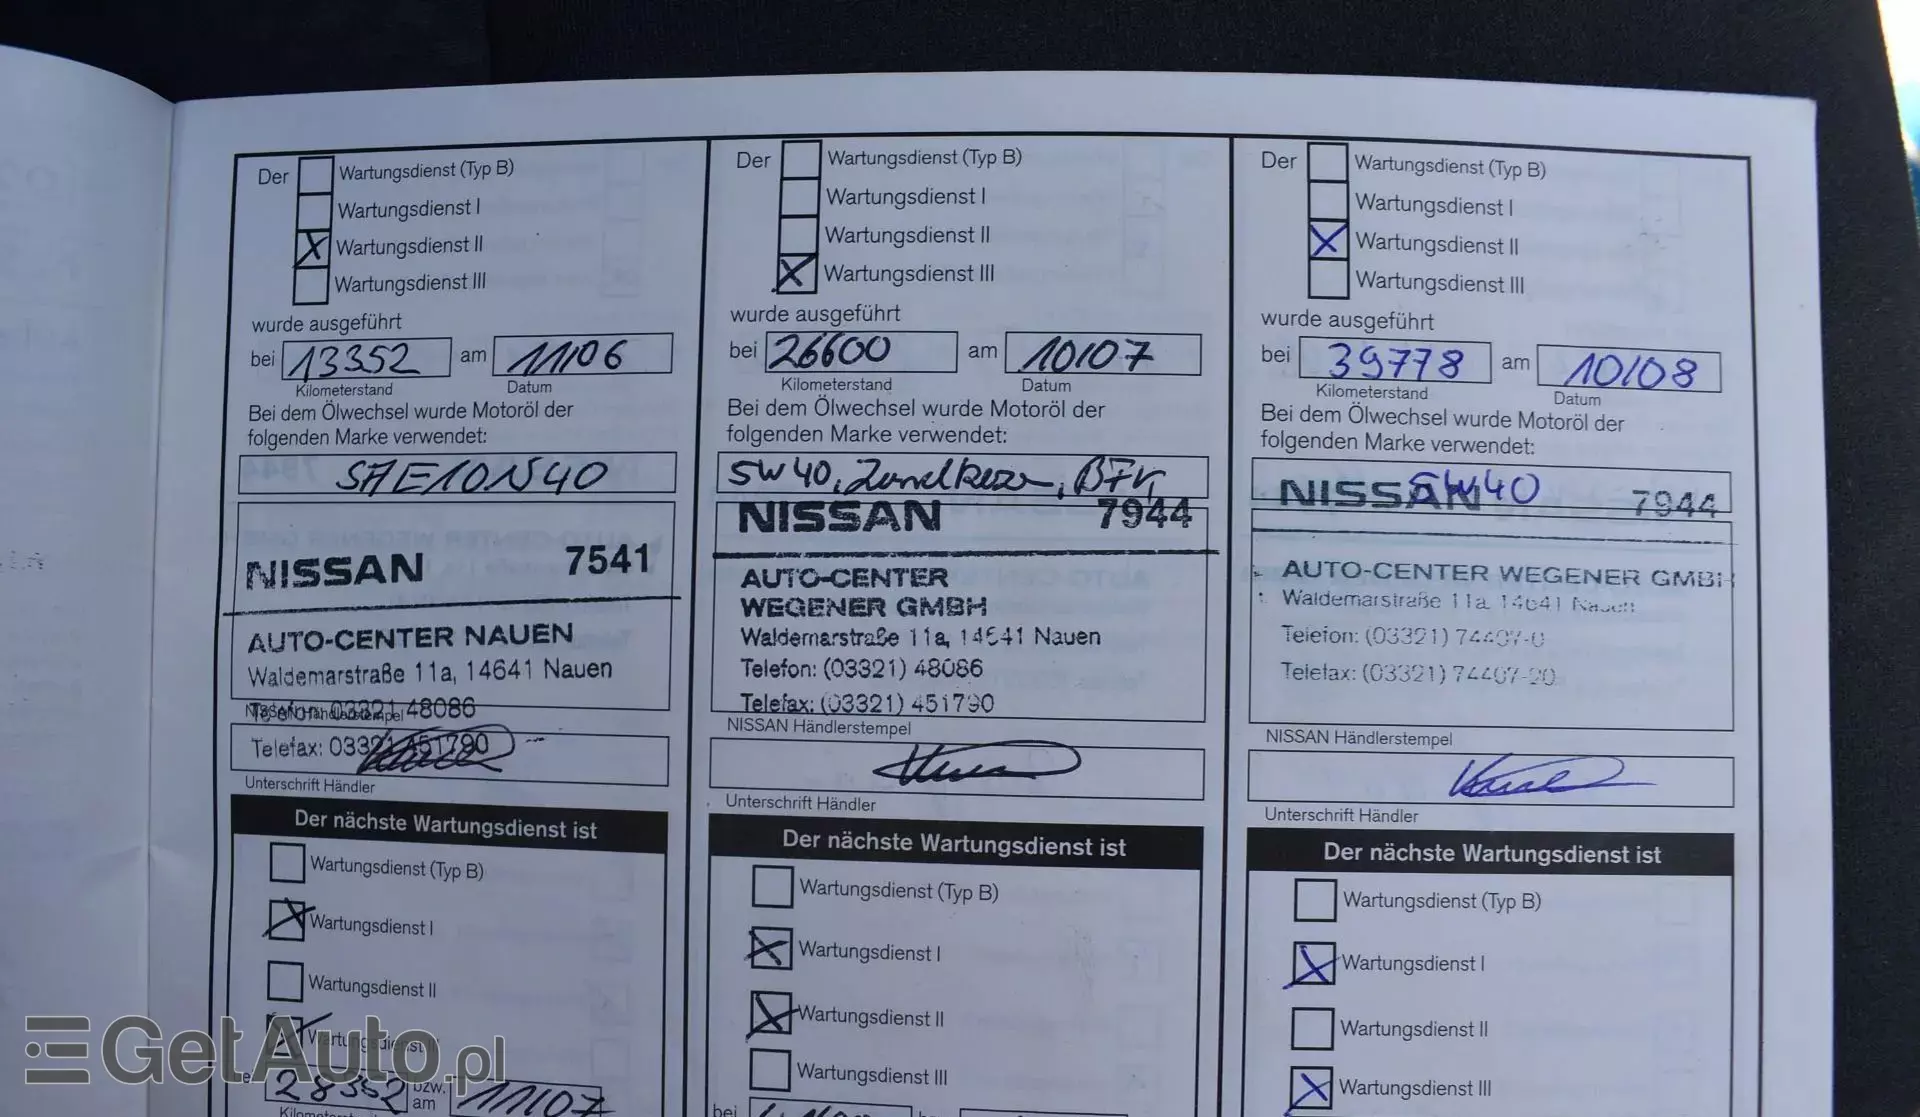 Der
Wartungsdienst (Typ B)
Wartungsdienst I
X Wartungsdienst II
Wartungsdienst III
wurde ausgeführt
bei 13352 am 11/06
Kilometerstand Datum
Bei dem Ölwechsel wurde Motoröl der
folgenden Marke verwendet:
SAE10W40
NISSAN 7541
AUTO-CENTER NAUEN
Waldemarstraße 11a, 14641 Nauen
Telefon: 03321 48086
NISSAN Händlerstempel
Telefax: 03321 451790
Unterschrift Händler
Der nächste Wartungsdienst ist
Wartungsdienst (Typ B)
X Wartungsdienst I
Wartungsdienst II
X Wartungsdienst III
28352 bzw. am 11/07
Der
Wartungsdienst (Typ B)
Wartungsdienst I
Wartungsdienst II
X Wartungsdienst III
wurde ausgeführt
bei 26600 am 10/07
Kilometerstand Datum
Bei dem Ölwechsel wurde Motoröl der
folgenden Marke verwendet:
5W40,
NISSAN 7944
AUTO-CENTER
WEGENER GMBH
Waldemarstraße 11a, 14641 Nauen
Telefon: (03321) 48086
Telefax: (03321) 451790
NISSAN Händlerstempel
Unterschrift Händler
Der nächste Wartungsdienst ist
Wartungsdienst (Typ B)
X Wartungsdienst I
X Wartungsdienst II
Wartungsdienst III
bei
Der
Wartungsdienst (Typ B)
Wartungsdienst I
X Wartungsdienst II
Wartungsdienst III
wurde ausgeführt
bei 39778 am 10/08
Kilometerstand Datum
Bei dem Ölwechsel wurde Motoröl der
folgenden Marke verwendet:
5W40
NISSAN 7944
AUTO-CENTER WEGENER GMBH
Waldemarstraße 11a, 14641 Nauen
Telefon: (03321) 74407-0
Telefax: (03321) 74407-20
NISSAN Händlerstempel
Unterschrift Händler
Der nächste Wartungsdienst ist
Wartungsdienst (Typ B)
X Wartungsdienst I
Wartungsdienst II
X Wartungsdienst III
GetAuto.pl